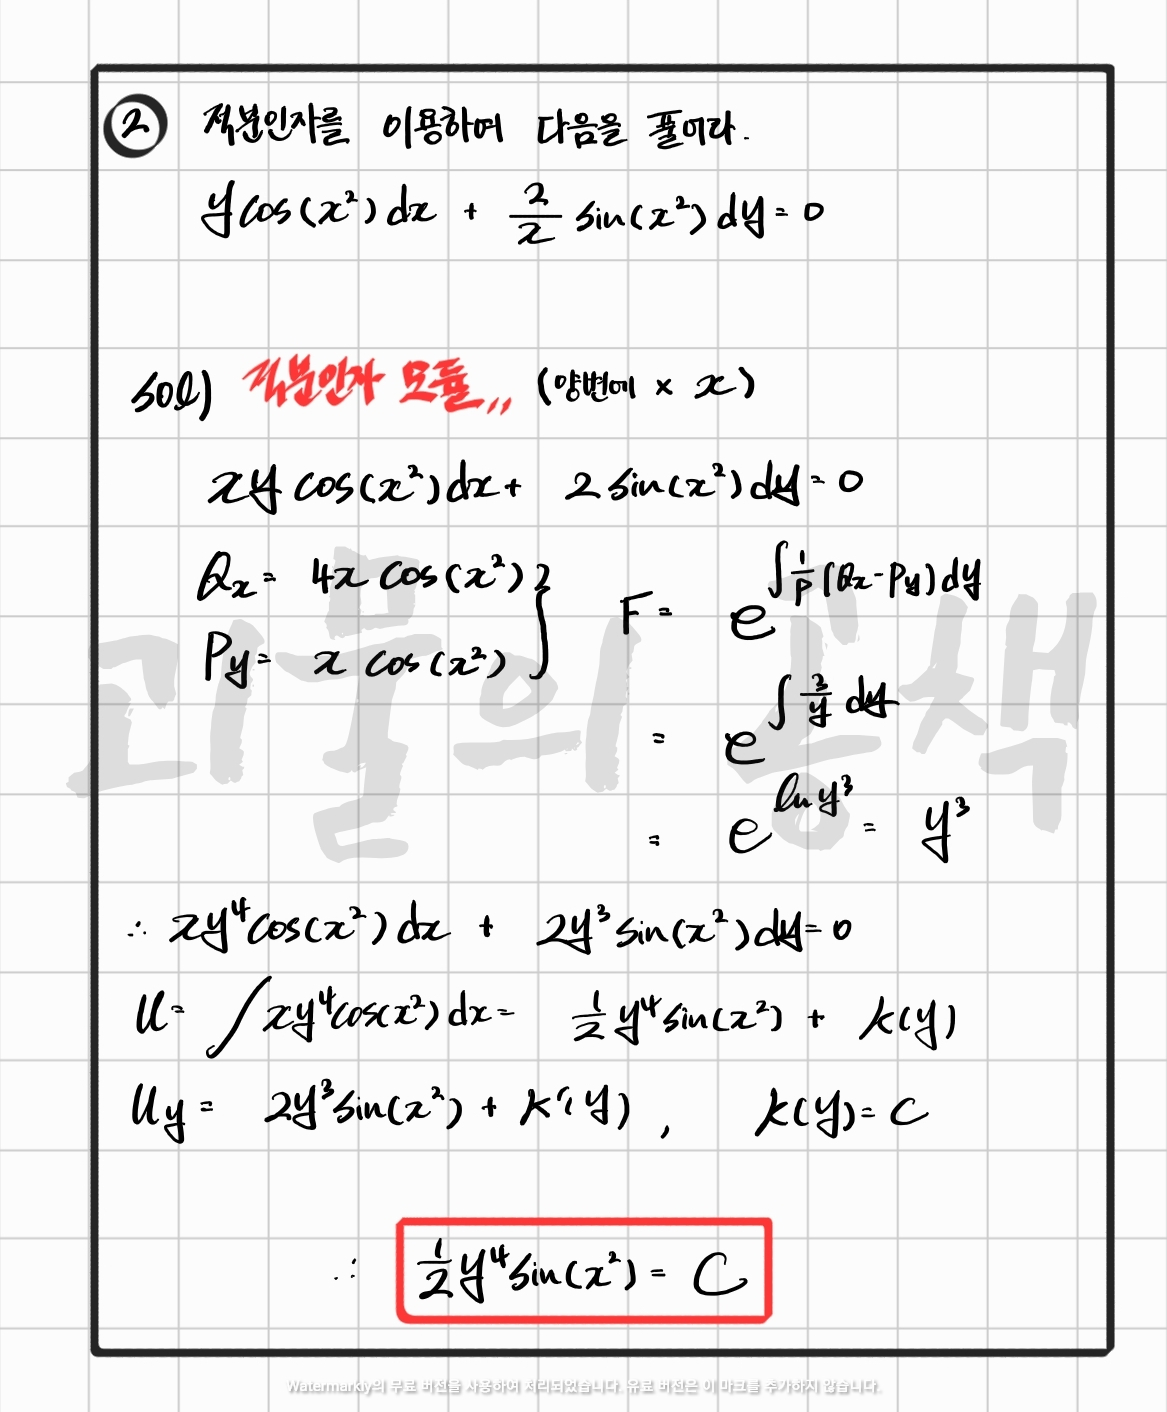 ② 적분인자를 이용하여 다음을 풀어라.
y cos(x²) dx + 2/x sin(x²) dy = 0
sol) 적분인자 모듈,, (양변에 × x)
xy cos(x²) dx + 2 sin(x²) dy = 0
Qx = 4x cos(x²)
Py = x cos(x²)
} F = e^∫ 1/P (Qx - Py) dy
= e^∫ 3/y dy
= e^ln y³ = y³
괴물의 공책
∴ xy⁴ cos(x²) dx + 2y³ sin(x²) dy = 0
u = ∫ xy⁴ cos(x²) dx = 1/2 y⁴ sin(x²) + k(y)
uy = 2y³ sin(x²) + k'(y), k(y) = C
∴ 1/2 y⁴ sin(x²) = C
Watermarkly의 무료 버전을 사용하여 처리되었습니다. 유료 버전은 이 마크를 추가하지 않습니다.